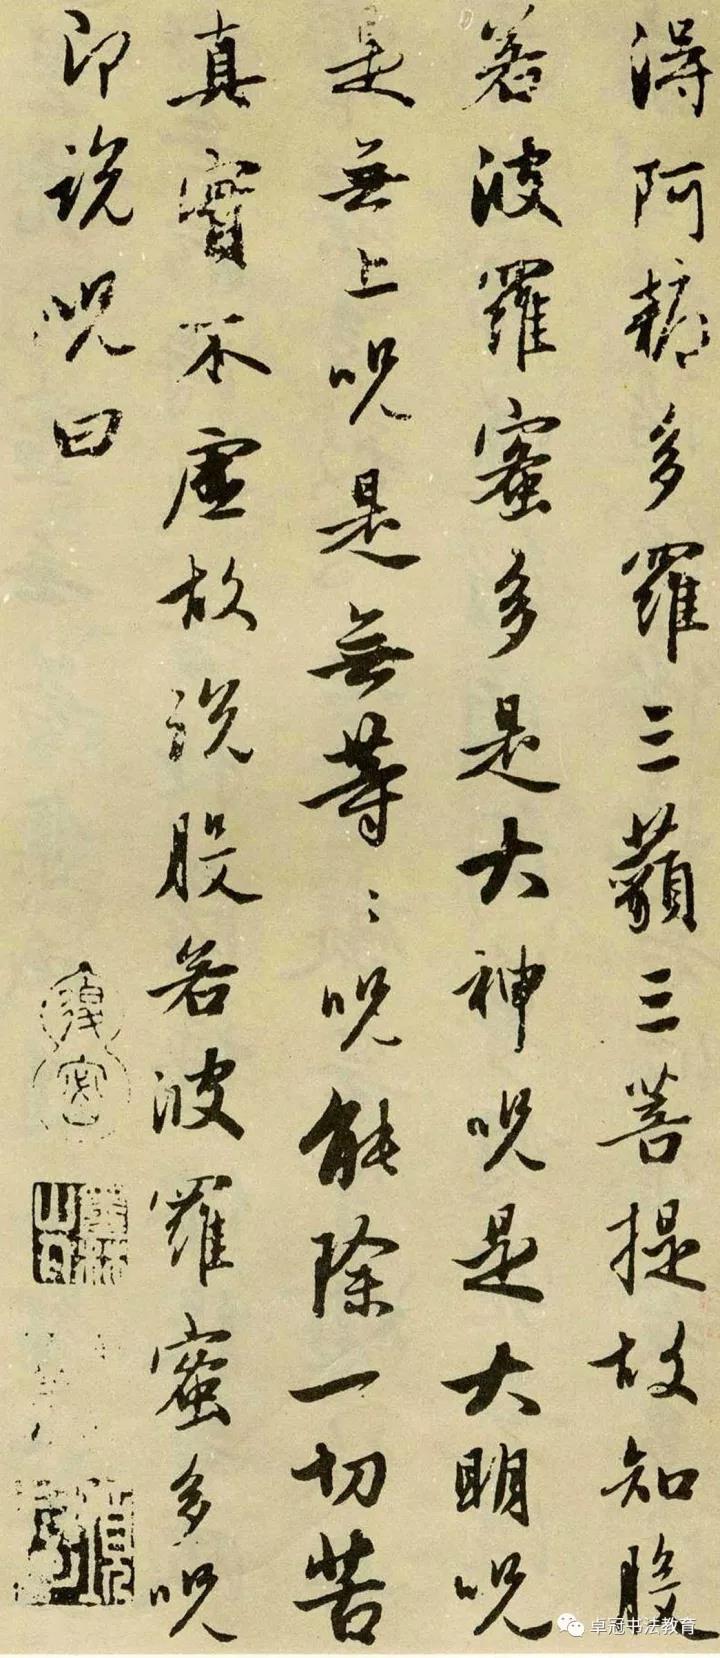 得阿耨多羅三藐三菩提故知般
若波羅蜜多是大神呪是大明呪
是無上呪是無等〻呪能除一切苦
真實不虛故說般若波羅蜜多呪
即說呪曰
卓冠书法教育